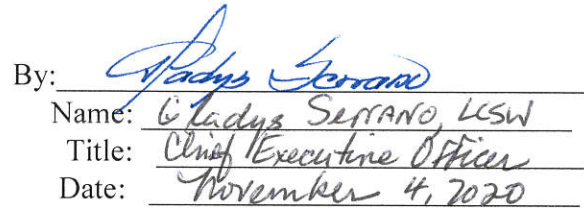 By: Gladys Serrano
Name: Gladys Serrano, LCSW
Title: Chief Executive Officer
Date: November 4, 2020